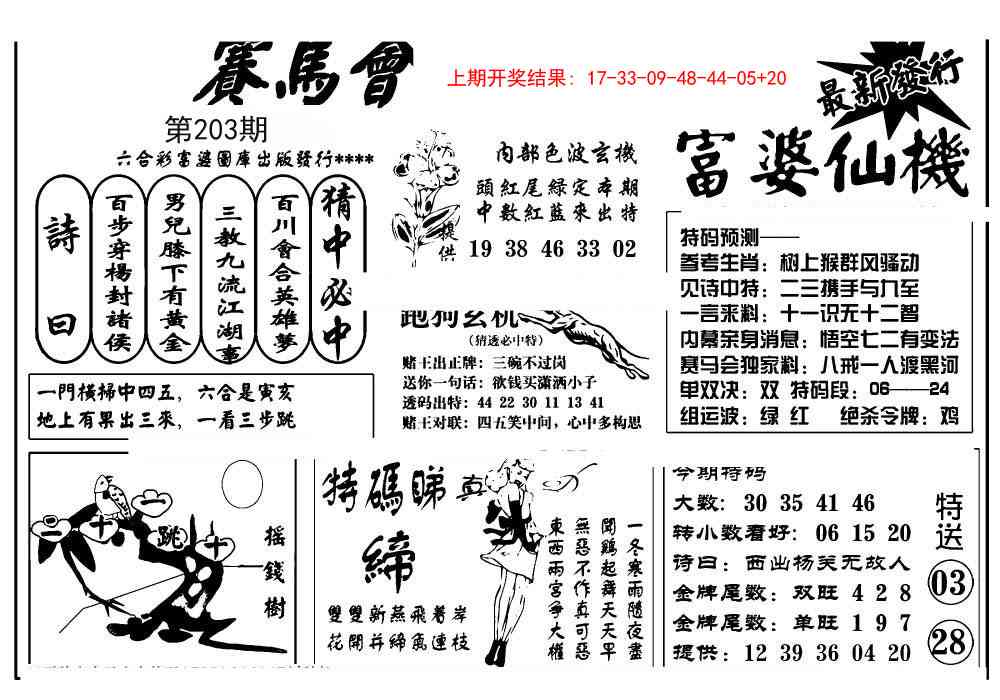 賽馬會
上期开奖结果：17-33-09-48-44-05+20
最新發行
第203期
六合彩富婆圖庫出版發行****
富婆仙機
詩曰
百步穿楊封諸侯
男兒膝下有黃金
三教九流江湖事
百川會合英雄夢
猜中必中
內部色波玄機
頭紅尾綠定本期
中數紅藍來出特
提供
19 38 46 33 02
特码预测——
参考生肖：树上猴群风骚动
见诗中特：二三携手与九至
一言来料：十一识无十二智
内幕亲身消息：悟空七二有变法
赛马会独家料：八戒一人渡黑河
单双决：双 特码段：06——24
组运波：绿 红 绝杀令牌：鸡
跑狗玄机
（猜透必中特）
赌王出正牌：三碗不过岗
送你一句话：欲钱买潇洒小子
透码出特：44 22 30 11 13 41
赌王对联：四五笑中间，心中多构思
一門橫掃中四五，六合是寅亥
地上有果出三來，一看三步跳
一
十
一
跳
十
搖錢樹
特碼睇真
締
雙雙新燕飛着岸
花開并締魚連枝
一冬寒雨隨夜盡
聞鷄起舞天天平
無惡不作真可惡
東西兩宮爭大權
今期特码
大数：30 35 41 46
转小数看好：06 15 20
诗曰：西出杨关无故人
金牌尾数：双旺 4 2 8
金牌尾数：单旺 1 9 7
提供：12 39 36 04 20
特送
03
28